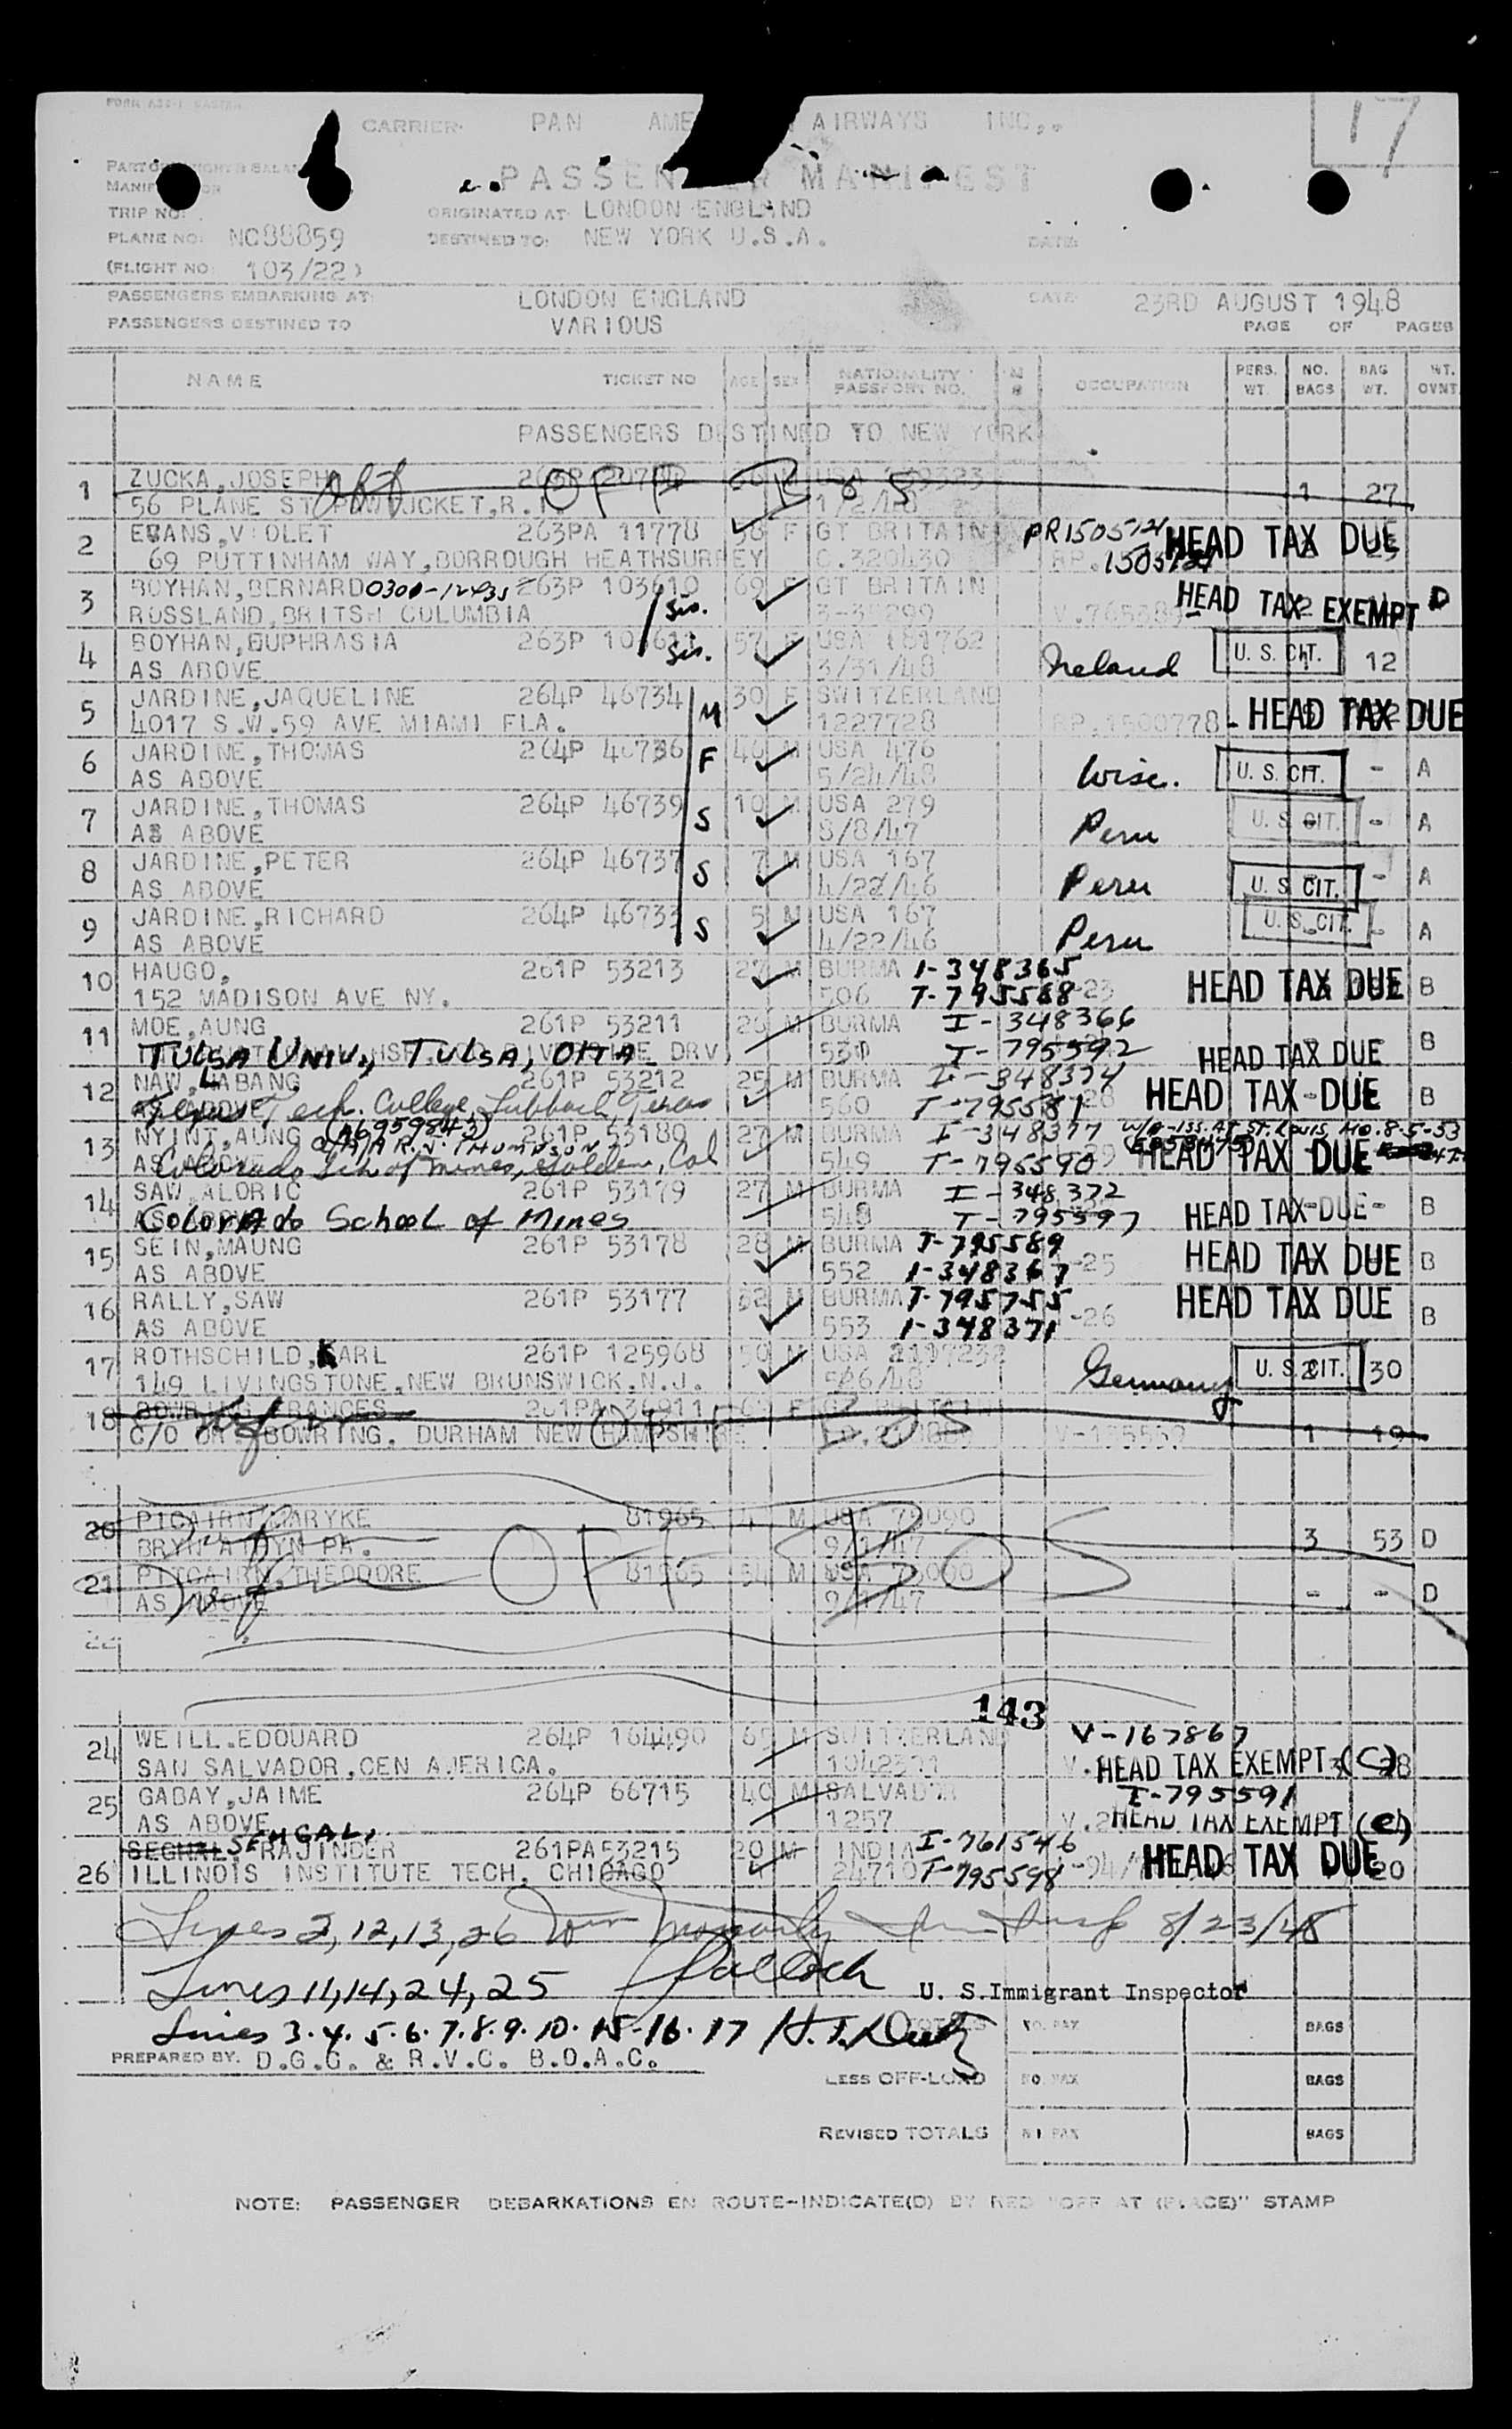 FORM
17
CARRIER: PAN AIRWAYS INC.,
PASSENGER MANIFEST
TRIP NO.
ORIGINATED AT: LONDON ENGLAND
PLANE NO: NC88859
DESTINED TO: NEW YORK U.S.A.
DATE
(FLIGHT NO: 103/22)
PASSENGERS EMBARKING AT: LONDON ENGLAND
DATE 23RD AUGUST 1948
PASSENGERS DESTINED TO VARIOUS
PAGE OF PAGES
NAME TICKET NO AGE SEX NATIONALITY PASSPORT NO. OCCUPATION PERS. WT. NO. BAGS BAG WT. WT. OVNT
PASSENGERS DESTINED TO NEW YORK
1 ZUCKA, JOSEPH OFF BOS
56 PLANE ST 1 27
2 EVANS, VIOLET 263PA 11778 56 F GT BRITAIN PR1505121 HEAD TAX DUE
69 PUTTINHAM WAY, BORROUGH HEATHSURREY C.320430
3 BOYHAN, BERNARD 0300-12435 263P 103610 69 GT BRITAIN HEAD TAX EXEMPT D
ROSSLAND, BRITSH COLUMBIA Sis.
4 BOYHAN, EUPHRASIA 263P 57 USA 181762
AS ABOVE Sis. 3/31/48 Ireland U. S. CIT. 12
5 JARDINE, JAQUELINE 264P 46734 M 30 F SWITZERLAND
4017 S.W.59 AVE MIAMI FLA. 1227728 RP.1500778- HEAD TAX DUE
6 JARDINE, THOMAS 264P 46736 F 46 M USA 476
AS ABOVE 5/24/48 Wisc. U. S. CIT. - A
7 JARDINE, THOMAS 264P 46739 S 10 M USA 279
AS ABOVE 8/8/47 Peru U. S. CIT. - A
8 JARDINE, PETER 264P 46737 S 7 M USA 167
AS ABOVE 4/22/46 Peru U. S. CIT. - A
9 JARDINE, RICHARD 264P 46733 S 5 M USA 167
AS ABOVE 4/22/46 Peru U. S. CIT. - A
10 HAUGO, 261P 53213 27 M BURMA I-348365
152 MADISON AVE NY. 506 T-795588 -23 HEAD TAX DUE B
11 MOE, AUNG 261P 53211 26 M BURMA I-348366
TULSA UNIV., TULSA, OKLA DRV 530 T-795592 HEAD TAX DUE B
12 NAW, LABANG 261P 53212 25 M BURMA I-348374
Texas Tech. College, Lubbock, Texas 560 T-795581 HEAD TAX DUE B
13 NYINT, AUNG (A6959843) 261P 53180 27 M BURMA I-348377 W/A-ISS. AT ST. LOUIS, MO. 8-5-53
Colorado Sch of Mines, Golden, Col 549 T-795590 HEAD TAX DUE
14 SAW, ALORIC 261P 53179 27 M BURMA I-348372
Colorado School of Mines 548 T-795597 HEAD TAX DUE B
15 SEIN, MAUNG 261P 53178 28 M BURMA T-795589
AS ABOVE 552 I-348367 -25 HEAD TAX DUE B
16 RALLY, SAW 261P 53177 32 M BURMA T-795755
AS ABOVE 553 I-348371 -26 HEAD TAX DUE B
17 ROTHSCHILD, KARL 261P 125968 50 M USA
149 LIVINGSTONE, NEW BRUNSWICK, N.J. Germany U. S. CIT. 30
18 BOWRING FRANCES OFF BOS
C/O DR. BOWRING. DURHAM NEW HAMPSHIRE 1 19
20 PICAIRN, MARYKE 81965 M USA
BRYN ATHYN PA. 9/1/47 3 53 D
OFF BOS
21 PITCAIRN, THEODORE 81965 54 M USA
AS ABOVE 9/1/47 - - D
22
143
24 WEILL, EDOUARD 264P 164490 65 M SWITZERLAND V-167867
SAN SALVADOR, CEN AMERICA. HEAD TAX EXEMPT (C)
25 GABAY, JAIME 264P 66715 40 M SALVADOR T-795591
AS ABOVE 1257 HEAD TAX EXEMPT (e)
SEHGAL,
26 SEGHAL, RAJINDER 261PA53215 20 M INDIA I-761546
ILLINOIS INSTITUTE TECH, CHICAGO 24710 T-795598 HEAD TAX DUE 20
Lines 2, 12, 13, 26 8/23/48
Lines 11, 14, 24, 25
U. S. Immigrant Inspector
Lines 3.4.5.6.7.8.9.10.15.16.17
TOTALS NO. PAX BAGS
PREPARED BY. D.G.G. & R.V.C. B.O.A.C.
LESS OFF-LOAD NO. PAX BAGS
REVISED TOTALS NO. PAX BAGS
NOTE: PASSENGER DEBARKATIONS EN ROUTE-INDICATE(D) BY RED "OFF AT (PLACE)" STAMP